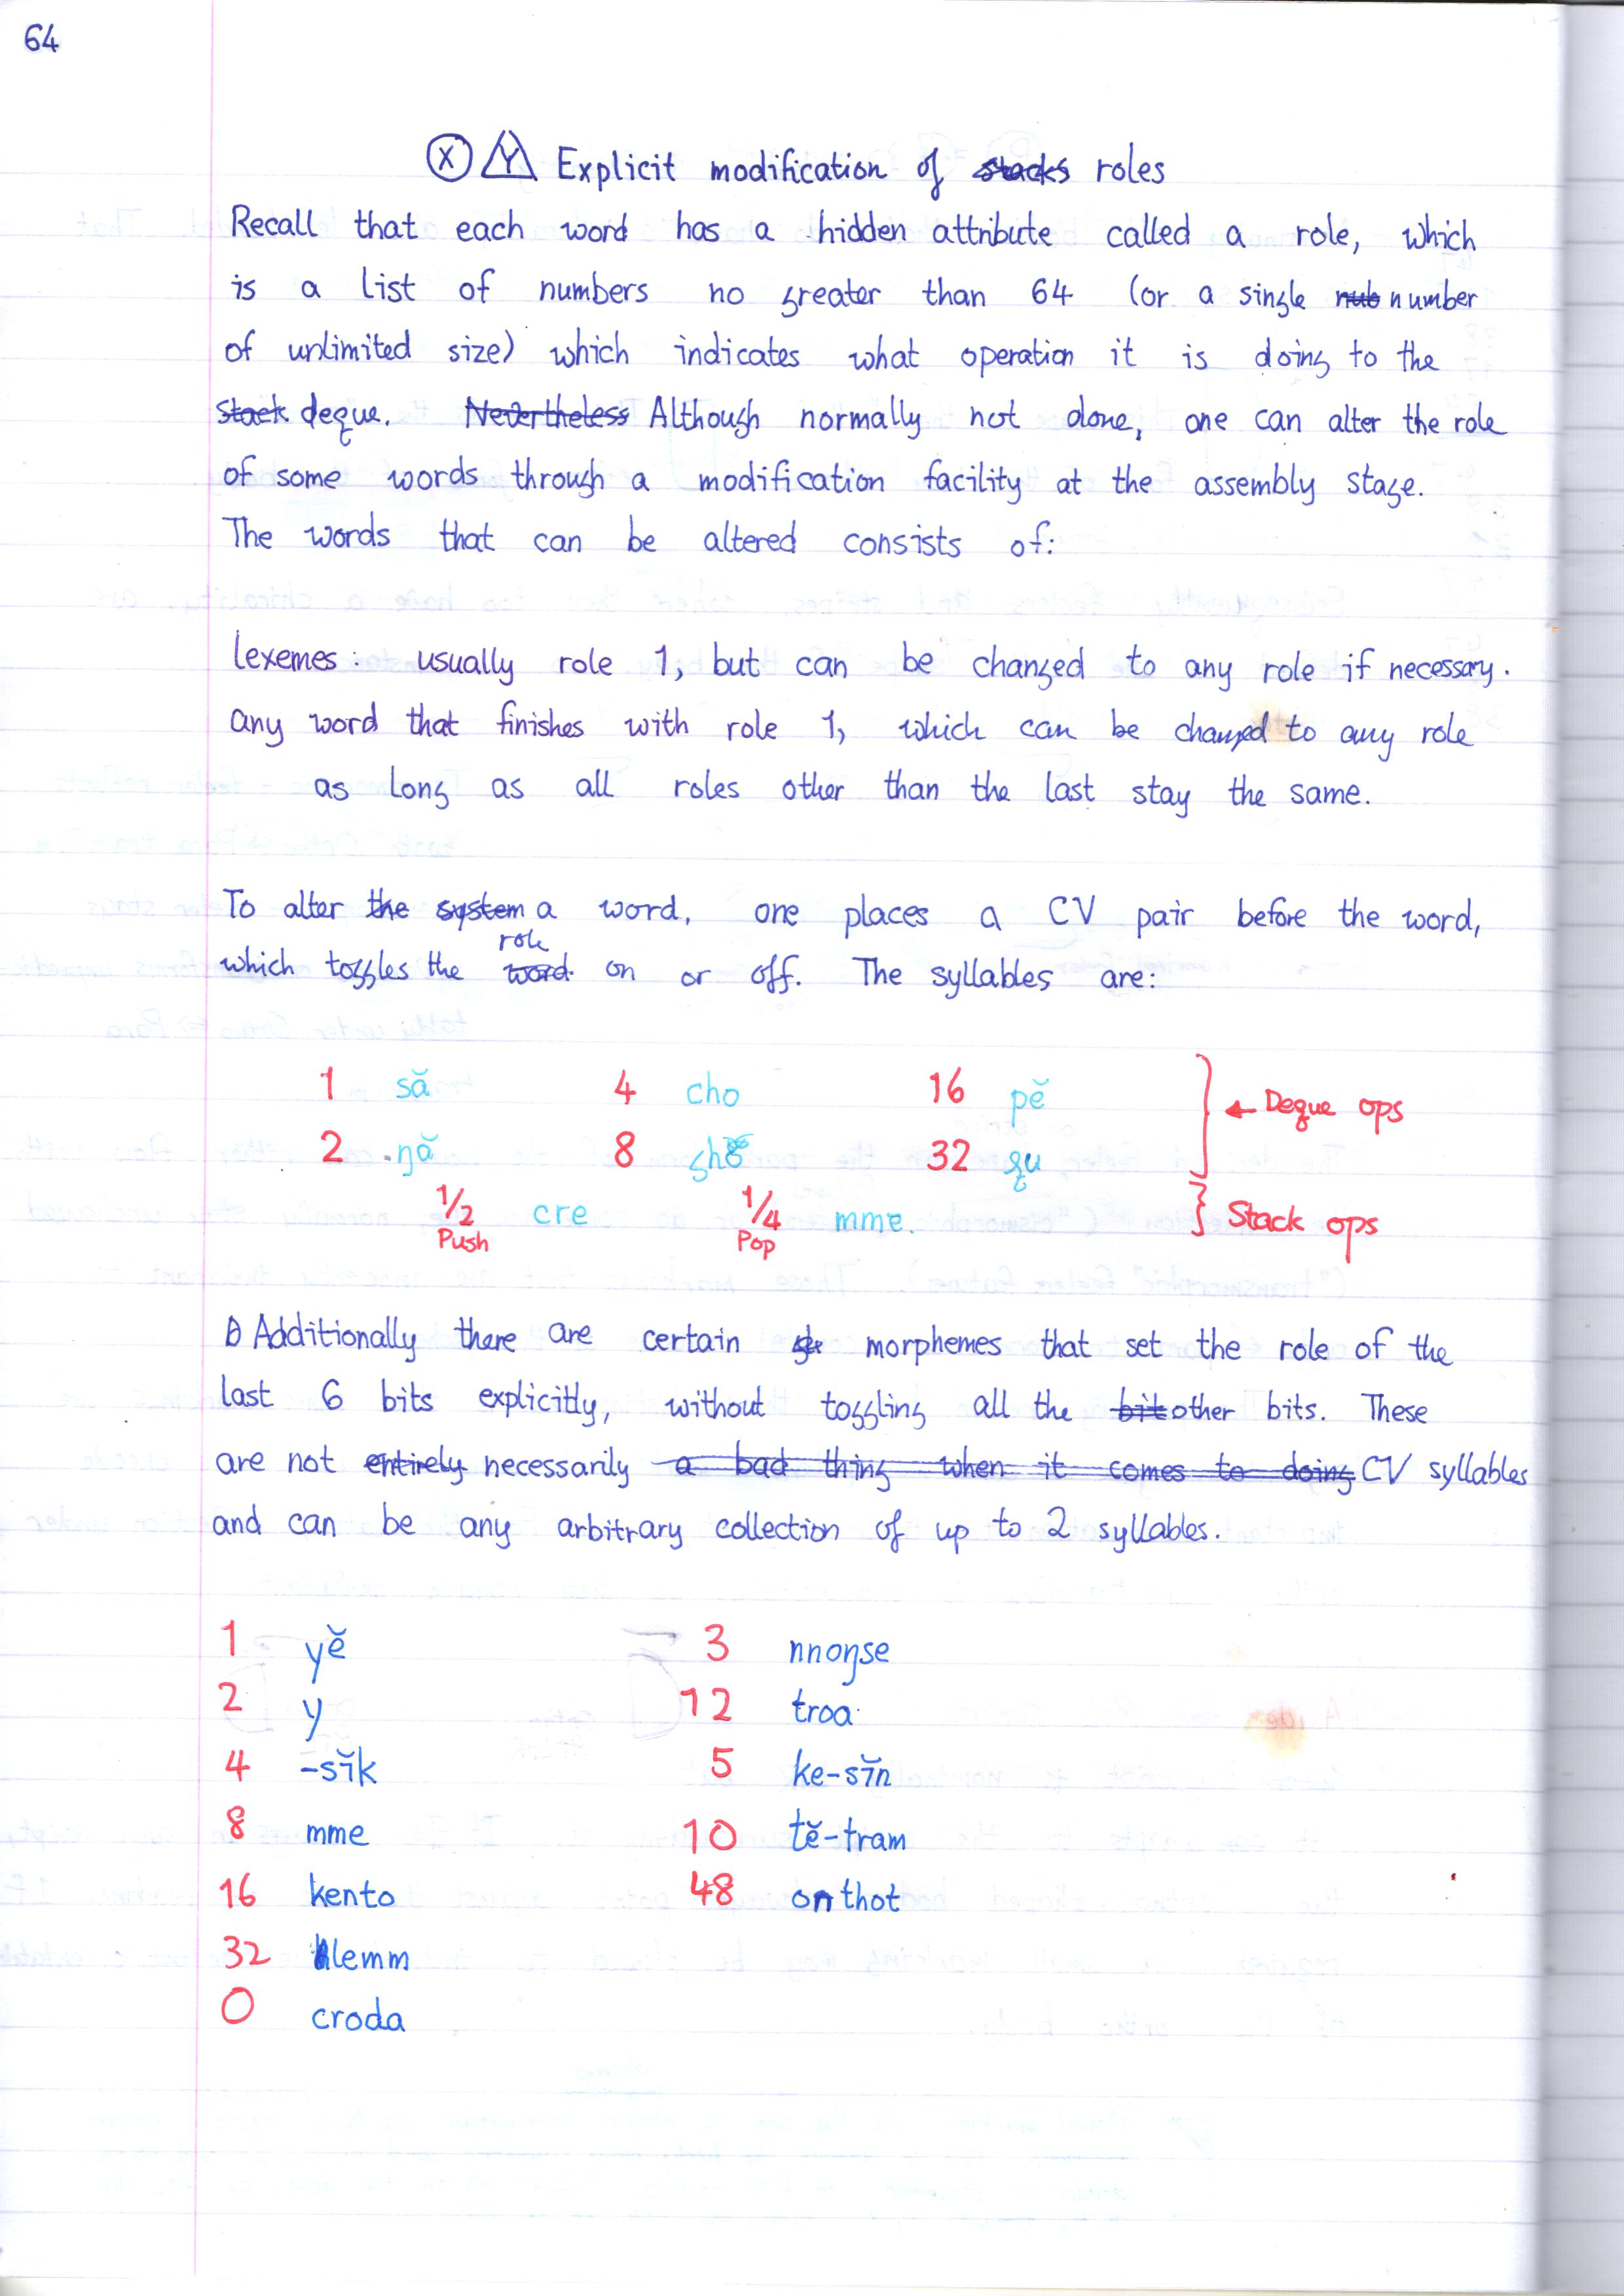 64
X Y Explicit modification of stacks roles
Recall that each word has a hidden attribute called a role, which
is a list of numbers no greater than 64 (or a single nub number
of unlimited size) which indicates what operation it is doing to the
stack deque. Nevertheless Although normally not done, one can alter the role
of some words through a modification facility at the assembly stage.
The words that can be altered consists of:
lexemes: usually role 1, but can be changed to any role if necessary.
any word that finishes with role 1, which can be changed to any role
as long as all roles other than the last stay the same.
To alter the system a word, one places a CV pair before the word,
role
which toggles the word on or off. The syllables are:
1 să 4 cho 16 pĕ
← Deque ops
2 ŋă 8 32 qu
1/2 cre 1/4 mme. Stack ops
Push Pop
Additionally there are certain morphemes that set the role of the
last 6 bits explicitly, without toggling all the bit other bits. These
are not entirely necessarily a bad thing when it comes to doing CV syllables
and can be any arbitrary collection of up to 2 syllables.
1 yĕ 3 nnoŋse
2 y 12 troa
4 -sĭk 5 ke-sĭn
8 mme 10 tĕ-tram
16 kento 48 onthot
32 lemm
0 croda